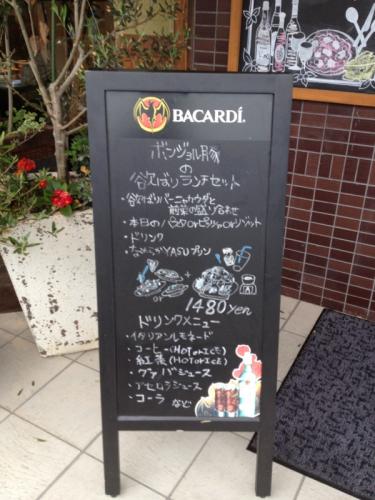 BACARDÍ.
ボンジョル豚
の
欲ばりランチセット
・欲ばりバーニャカウダと
前菜の盛り合わせ
・本日のパスタorピッツァorリゾット
・ドリンク
・なめらかYASUプリン
+
or
1480yen
ドリンクメニュー
・イタリアンレモネード
・コーヒー(HOTorICE)
・紅茶(HOTorICE)
・グァバジュース
・アセロラジュース
・コーラ など